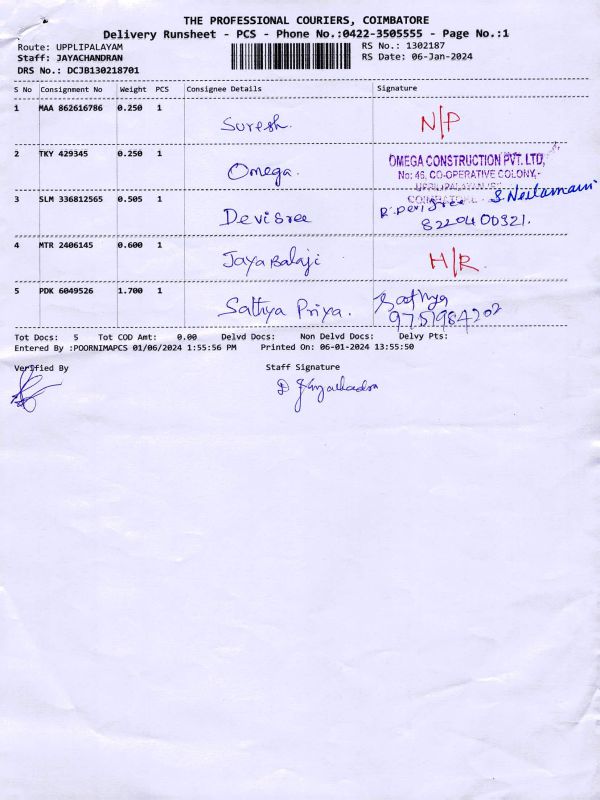 THE PROFESSIONAL COURIERS, COIMBATORE
Delivery Runsheet - PCS - Phone No.:0422-3505555 - Page No.:1
Route: UPPLIPALAYAM RS No.: 1302187
Staff: JAYACHANDRAN RS Date: 06-Jan-2024
DRS No.: DCJB130218701
S No Consignment No Weight PCS Consignee Details Signature
1 MAA 862616786 0.250 1 Suresh. N/P
2 TKY 429345 0.250 1 Omega. OMEGA CONSTRUCTION PVT. LTD,
No: 46, CO-OPERATIVE COLONY,-
UPPILIPALAYAM
COIMBATORE S. Neelamani
3 SLM 336812565 0.505 1 Devi Sree R. Devi Sree
8220400321.
4 MTR 2406145 0.600 1 Jaya Balaji H/R.
5 PDK 6049526 1.700 1 Sathya Priya. Sathya
9751984202
Tot Docs: 5 Tot COD Amt: 0.00 Delvd Docs: Non Delvd Docs: Delvy Pts:
Entered By :POORNIMAPCS 01/06/2024 1:55:56 PM Printed On: 06-01-2024 13:55:50
Verified By Staff Signature
D Jayachandra